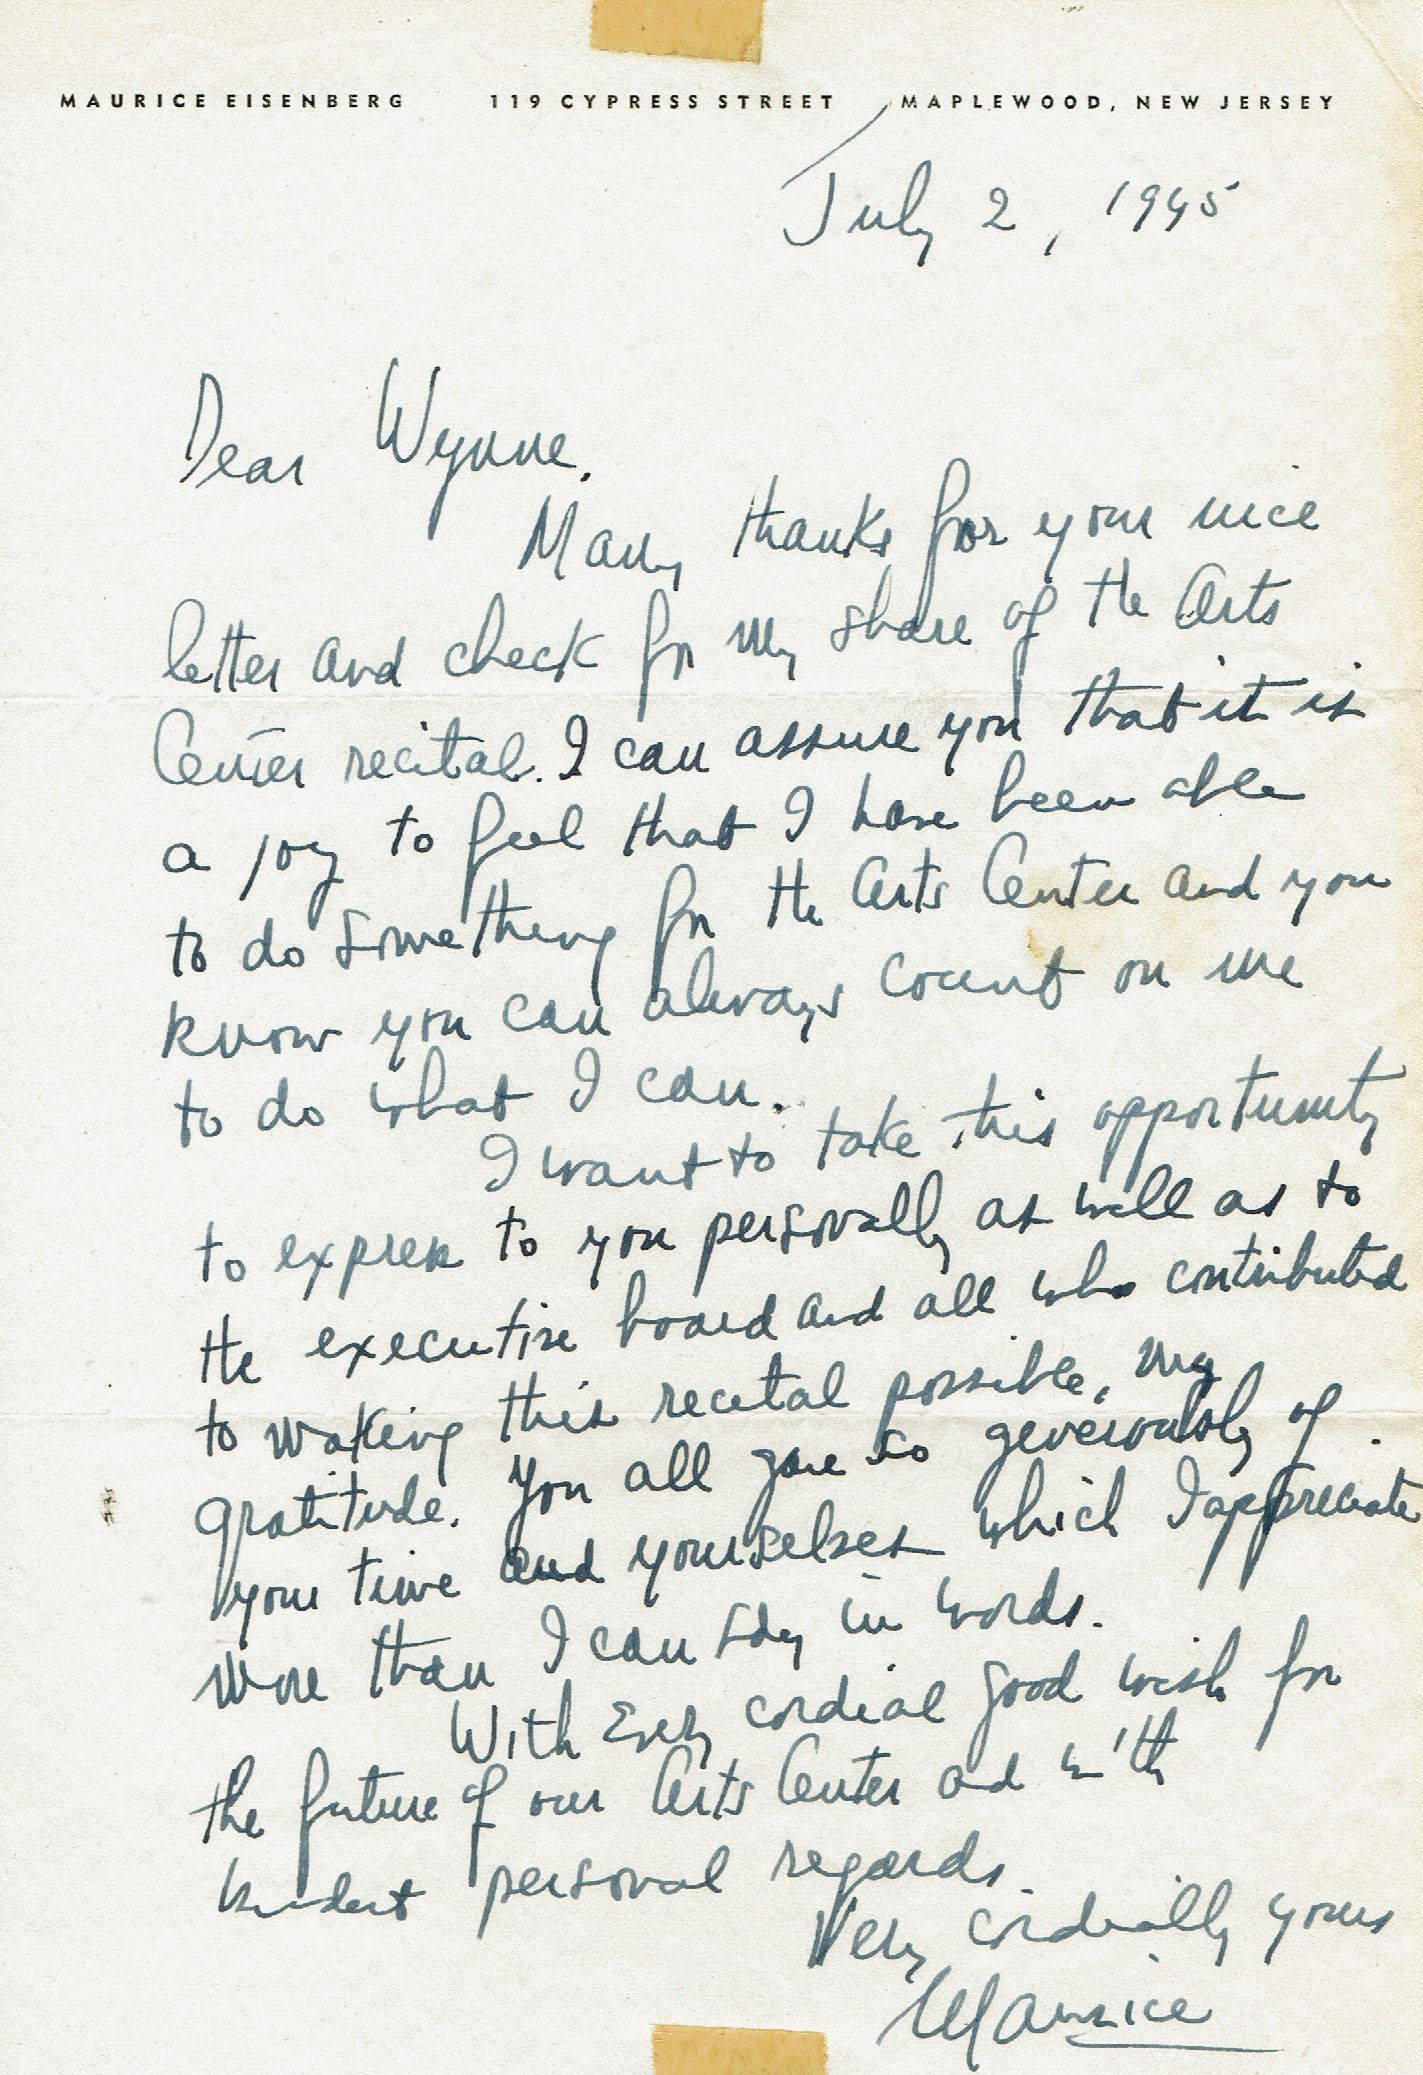 MAURICE EISENBERG 119 CYPRESS STREET MAPLEWOOD, NEW JERSEY
July 2, 1945
Dear Wynne,
Many thanks for your nice
letter and check for my share of the Arts
Center recital. I can assure you that it is
a joy to feel that I have been able
to do something for the Arts Center and you
know you can always count on me
to do what I can.
I want to take this opportunity
to express to you personally as well as to
the executive board and all who contributed
to making this recital possible, my
gratitude. You all gave so generously of
your time and yourselves which I appreciate
more than I can say in words.
With every cordial good wish for
the future of our Arts Center and with
kindest personal regards
Very cordially yours
Maurice